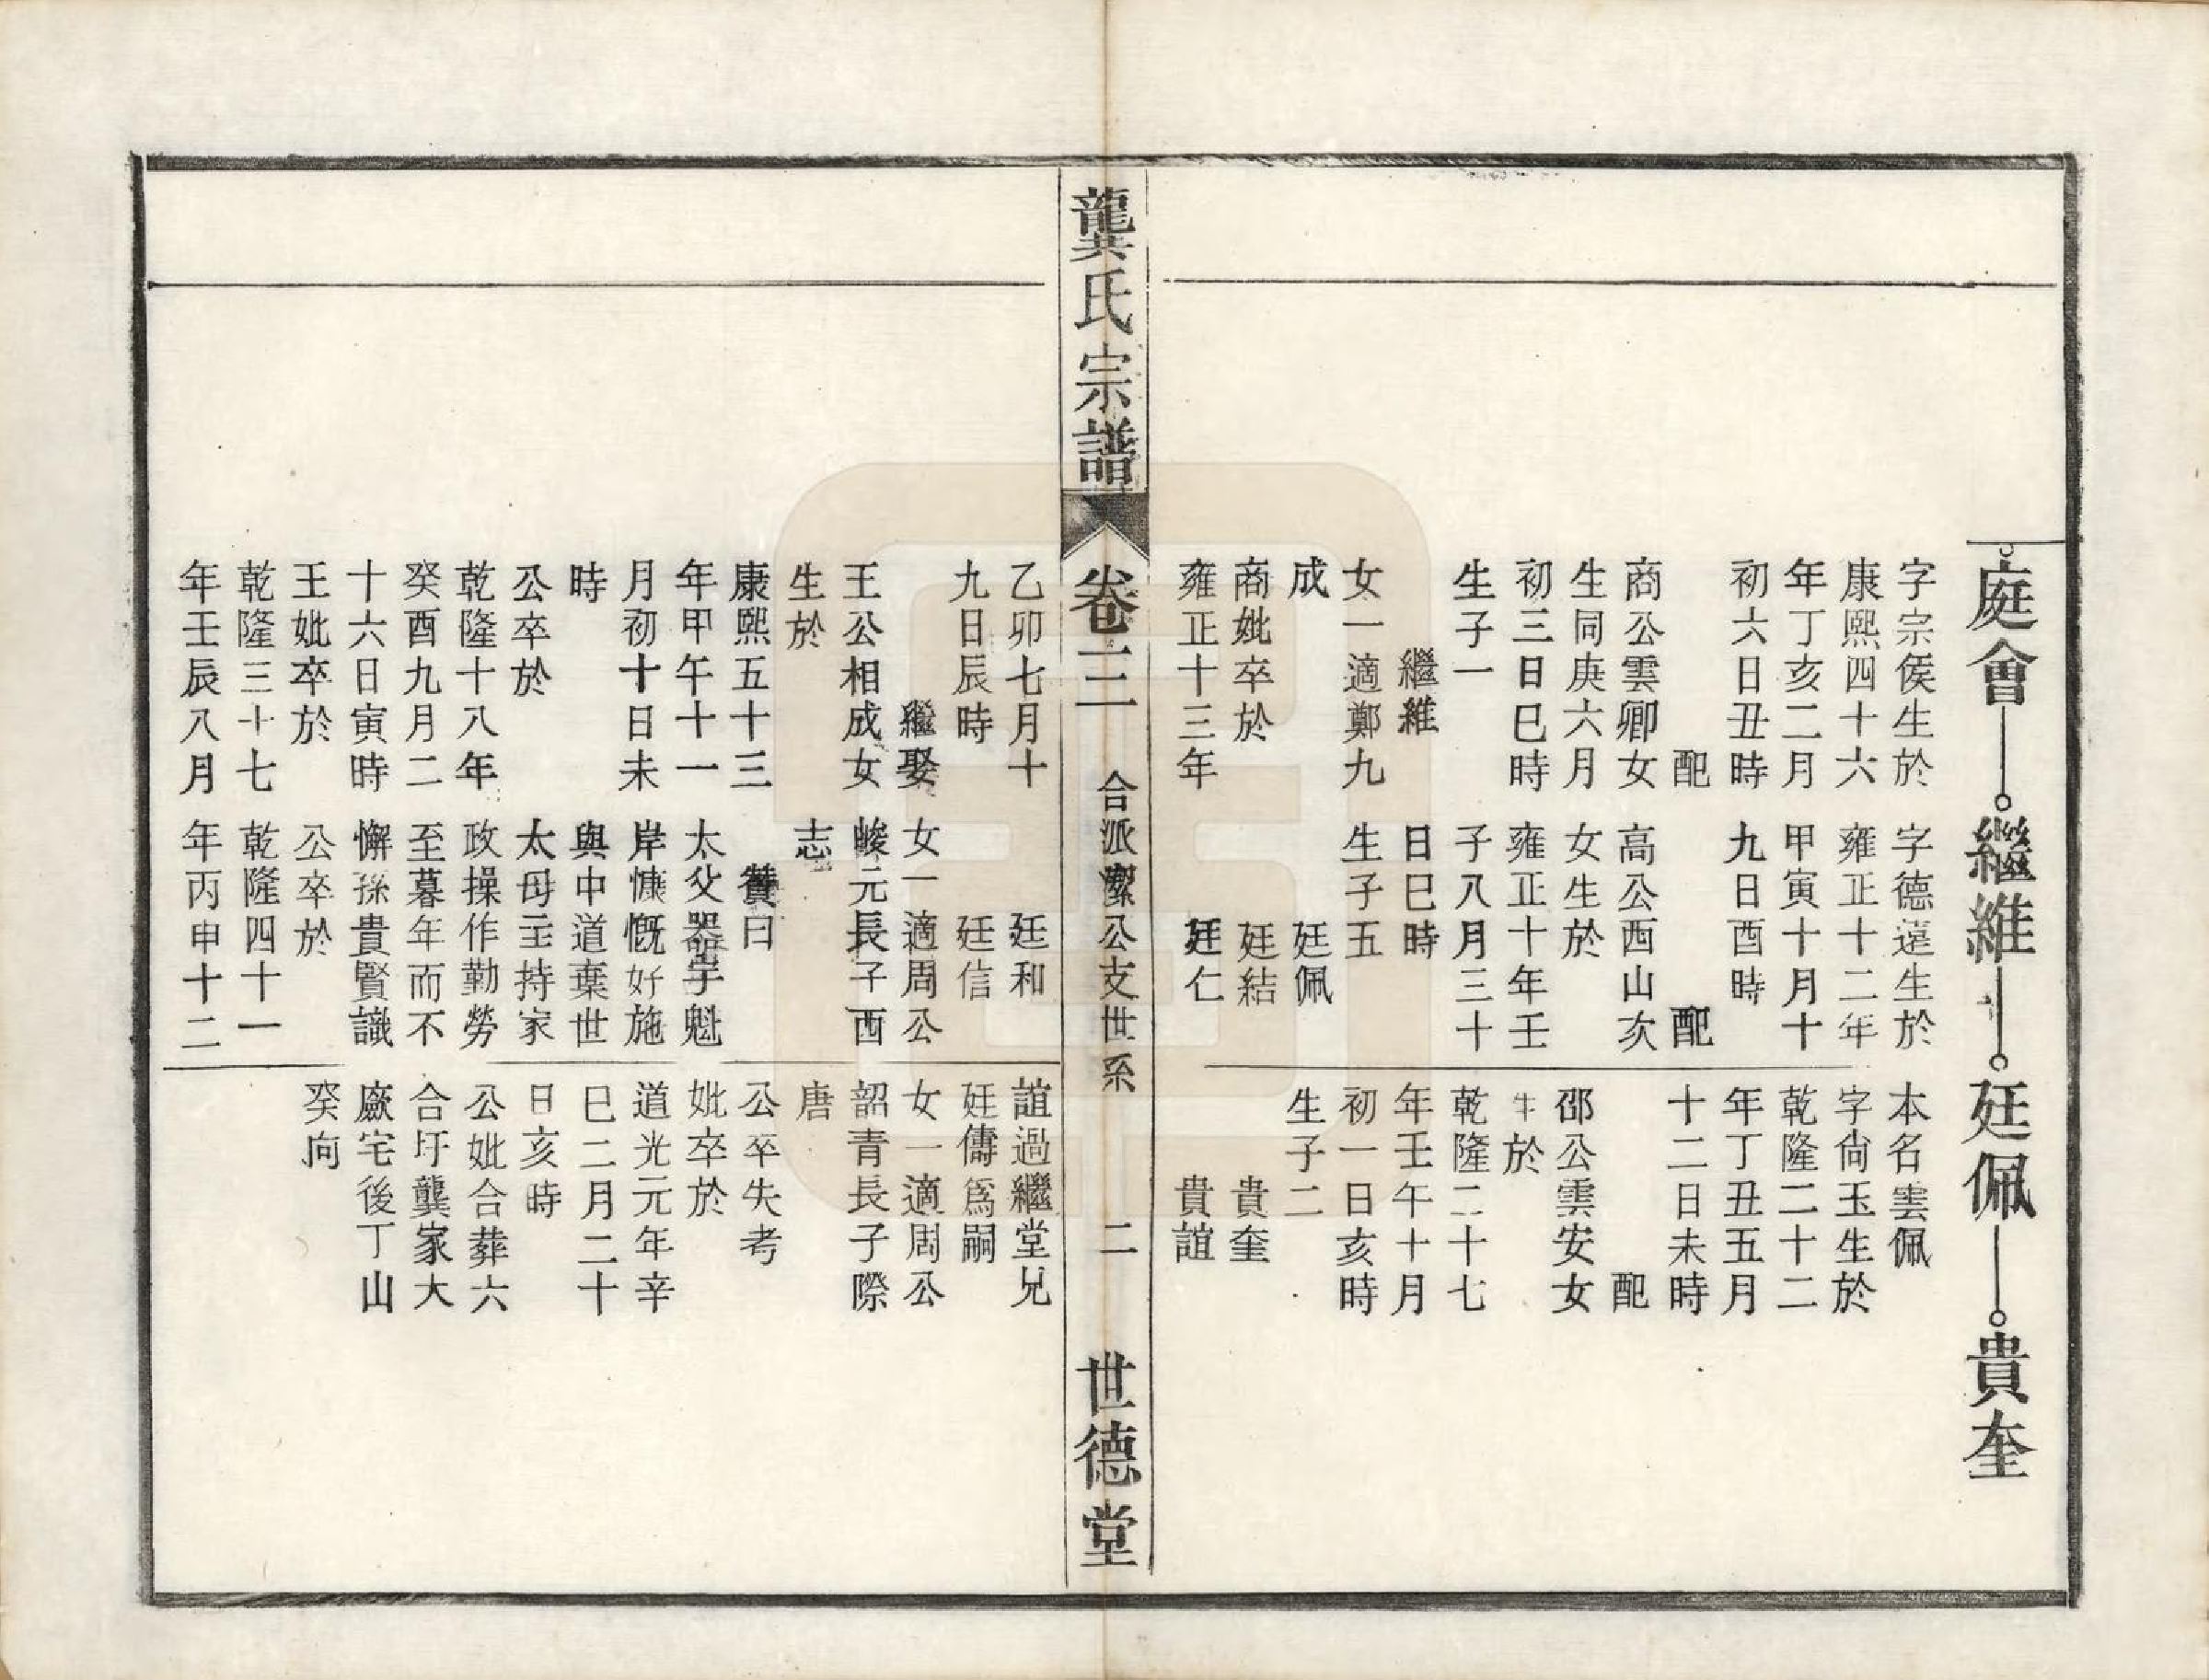 庭會
繼維
廷佩
貴奎
字宗侯生於
康熙四十六
年丁亥二月
初六日丑時
配
商公雲卿女
生同庚六月
初三日巳時
生子一
繼維
女一適鄭九
成
商妣卒於
雍正十三年
乙卯七月十
九日辰時
繼娶
王公相成女
生於
康熙五十三
年甲午十一
月初十日未
時
公卒於
乾隆十八年
癸酉九月二
十六日寅時
王妣卒於
乾隆三十七
年壬辰八月
字德遠生於
雍正十二年
甲寅十月十
九日酉時
配
高公西山次
女生於
雍正十年壬
子八月三十
日巳時
生子五
廷佩
廷結
廷仁
廷和
廷信
女一適周公
峻元長子西
志
贊曰
太父器宇魁
岸慷慨好施
與中道棄世
太母主持家
政操作勤勞
至暮年而不
懈孫貴賢識
公卒於
乾隆四十一
年丙申十二
本名雲佩
字尚玉生於
乾隆二十二
年丁丑五月
十二日未時
配
邵公雲安女
生於
乾隆二十七
年壬午十月
初一日亥時
生子二
貴奎
貴誼
誼過繼堂兄
廷儔為嗣
女一適周公
韶青長子際
唐
公卒失考
妣卒於
道光元年辛
巳二月二十
日亥時
公妣合葬六
合圩龔家大
廒宅後丁山
癸向
龔氏宗譜
卷三
合派潔公支世系
二
世德堂